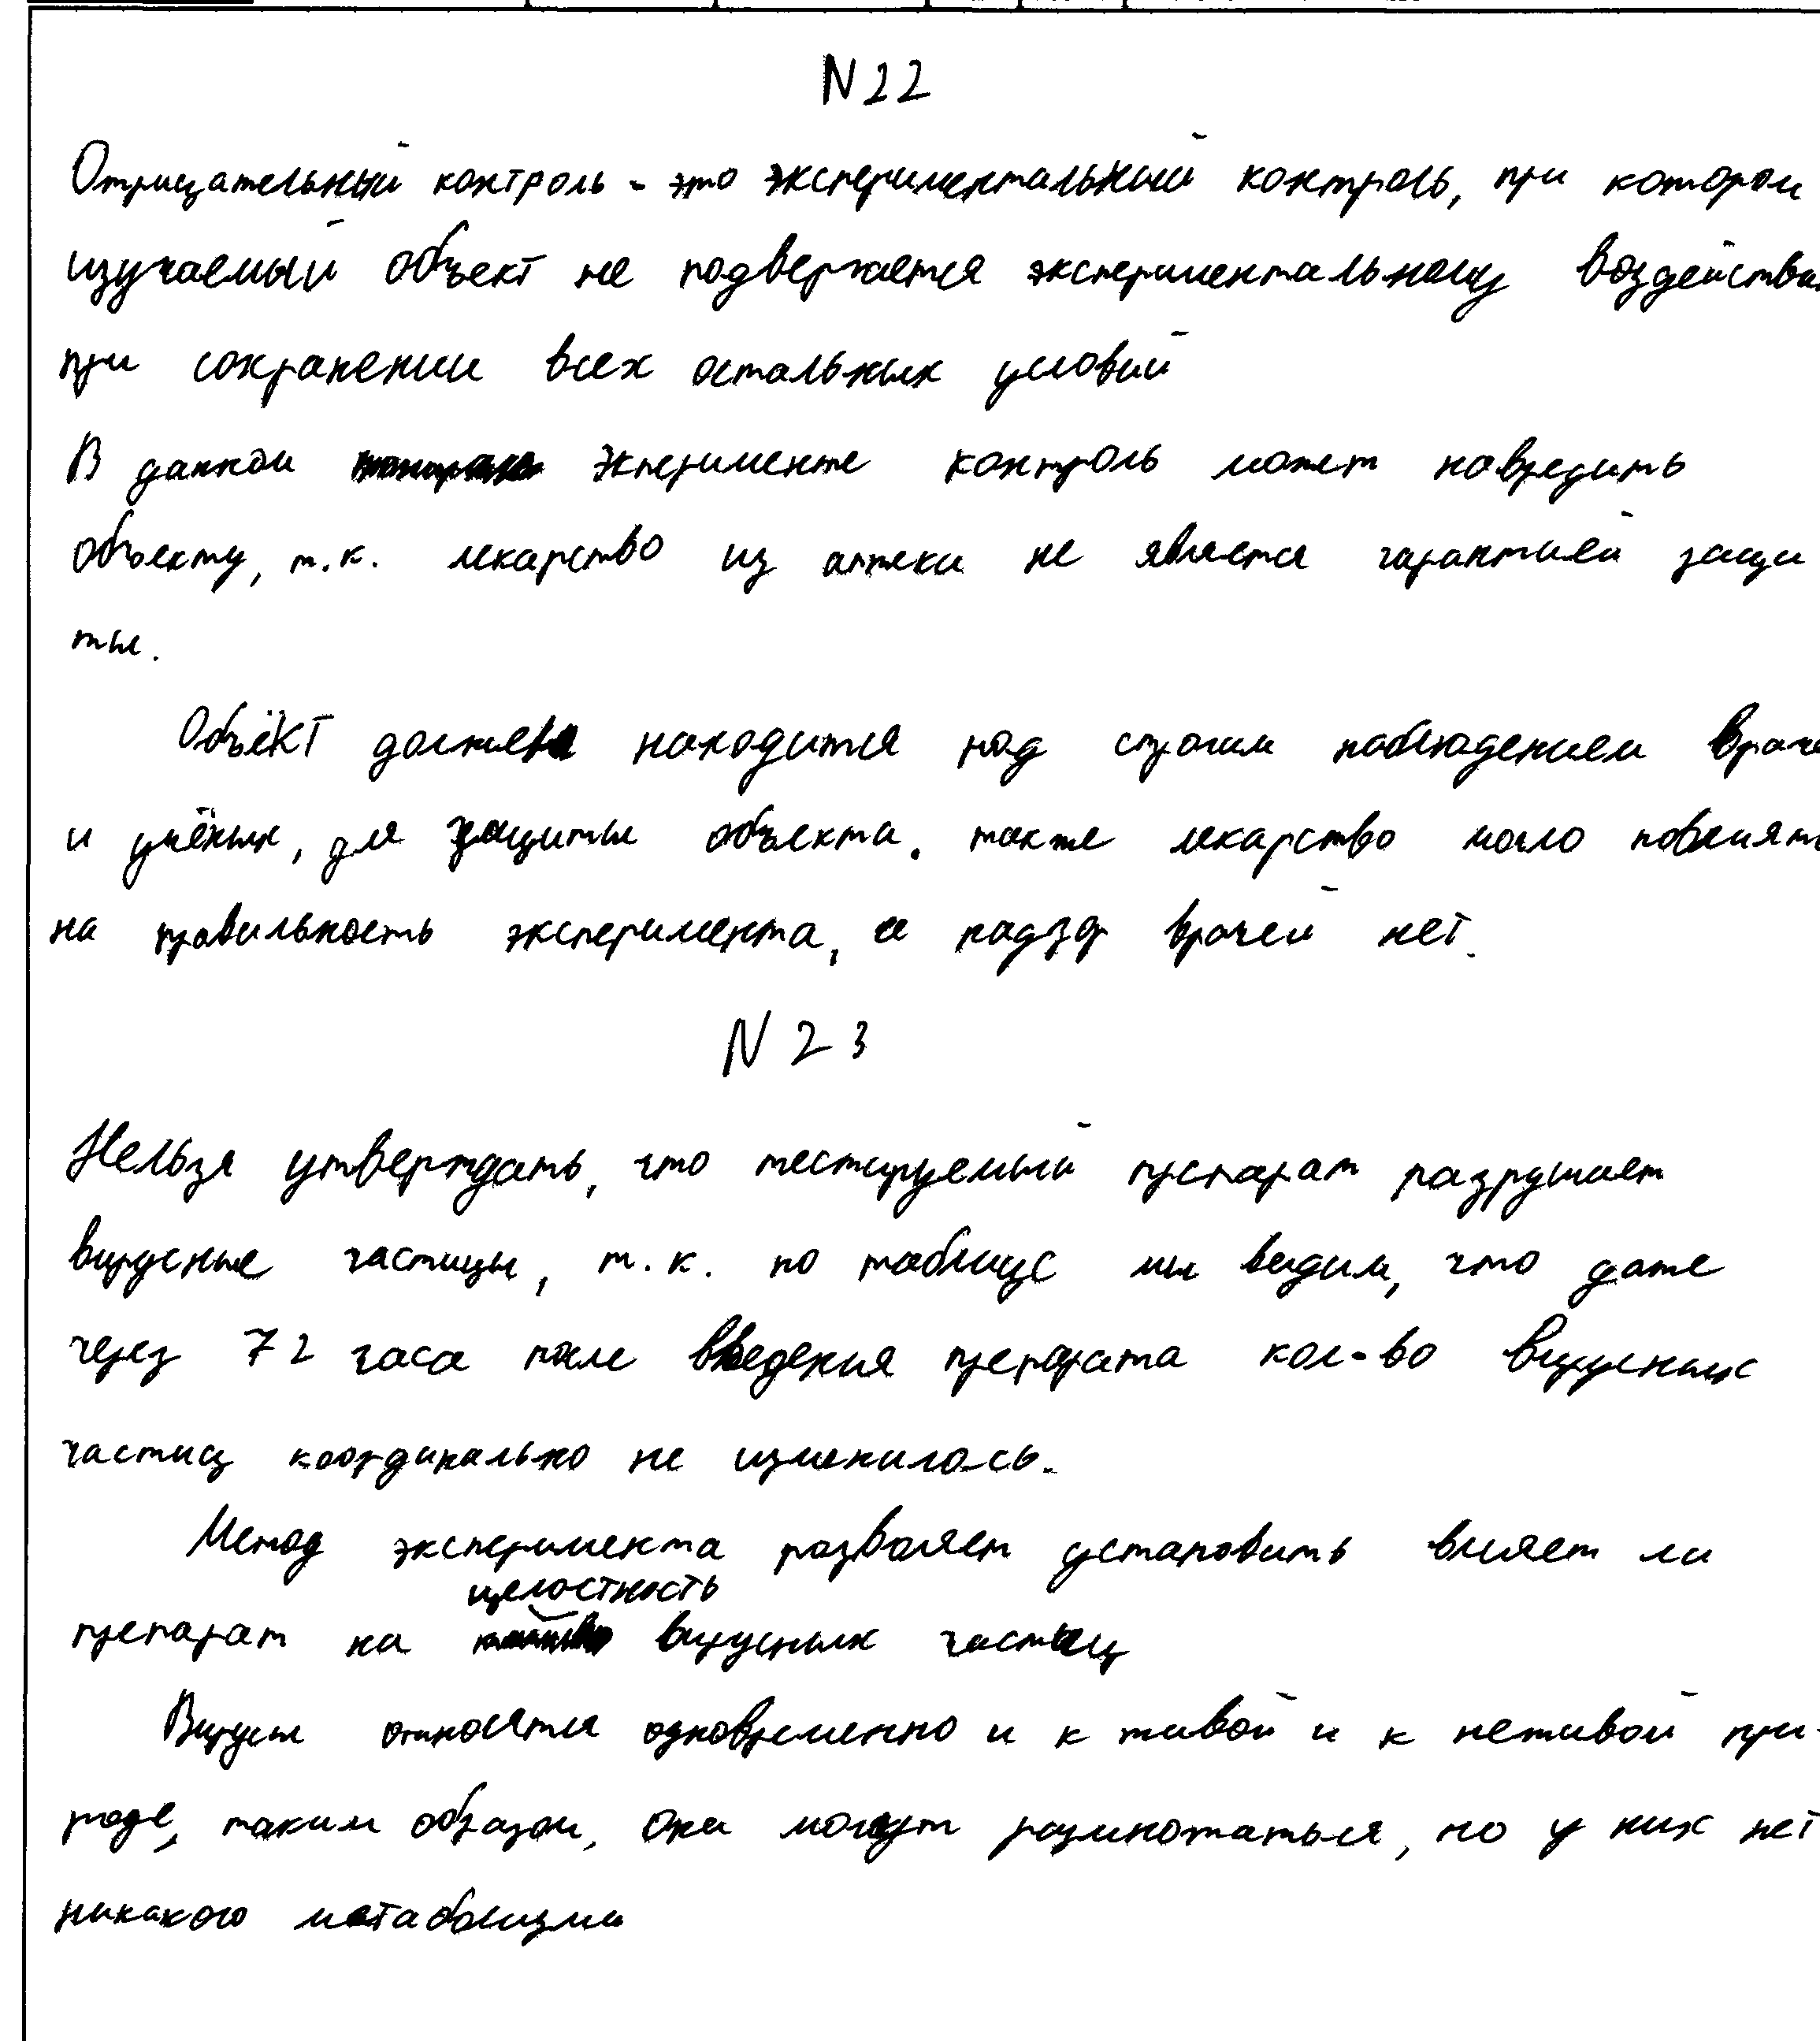 N22
Отрицательный контроль - это экспериментальный контроль, при котором
изучаемый объект не подвергается экспериментальному воздействи
при сохранении всех остальных условий
В данном эксперименте контроль может навредить
объекту, т.к. лекарство из аптеки не является гарантией защи
ты.
Объёкт должен находится под строгим наблюдением враче
и учёных, для защиты объекта. также лекарство могло повлият
на правильность эксперимента, а надзор врачей нет.
N 23
Нельзя утверждать, что тестируемый препарат разрушает
вирусные частицы, т.к. по таблице мы видим, что даже
через 72 часа после введения препарата кол-во вирусных
частиц координально не изменилось.
Метод эксперимента позволяет установить влияет ли
целостность
препарат на вирусных частиц
Вирусы относятся одновременно и к живой и к неживой при-
роде, таким образом, они могут размножаться, но у них нет
никакого метаболизма